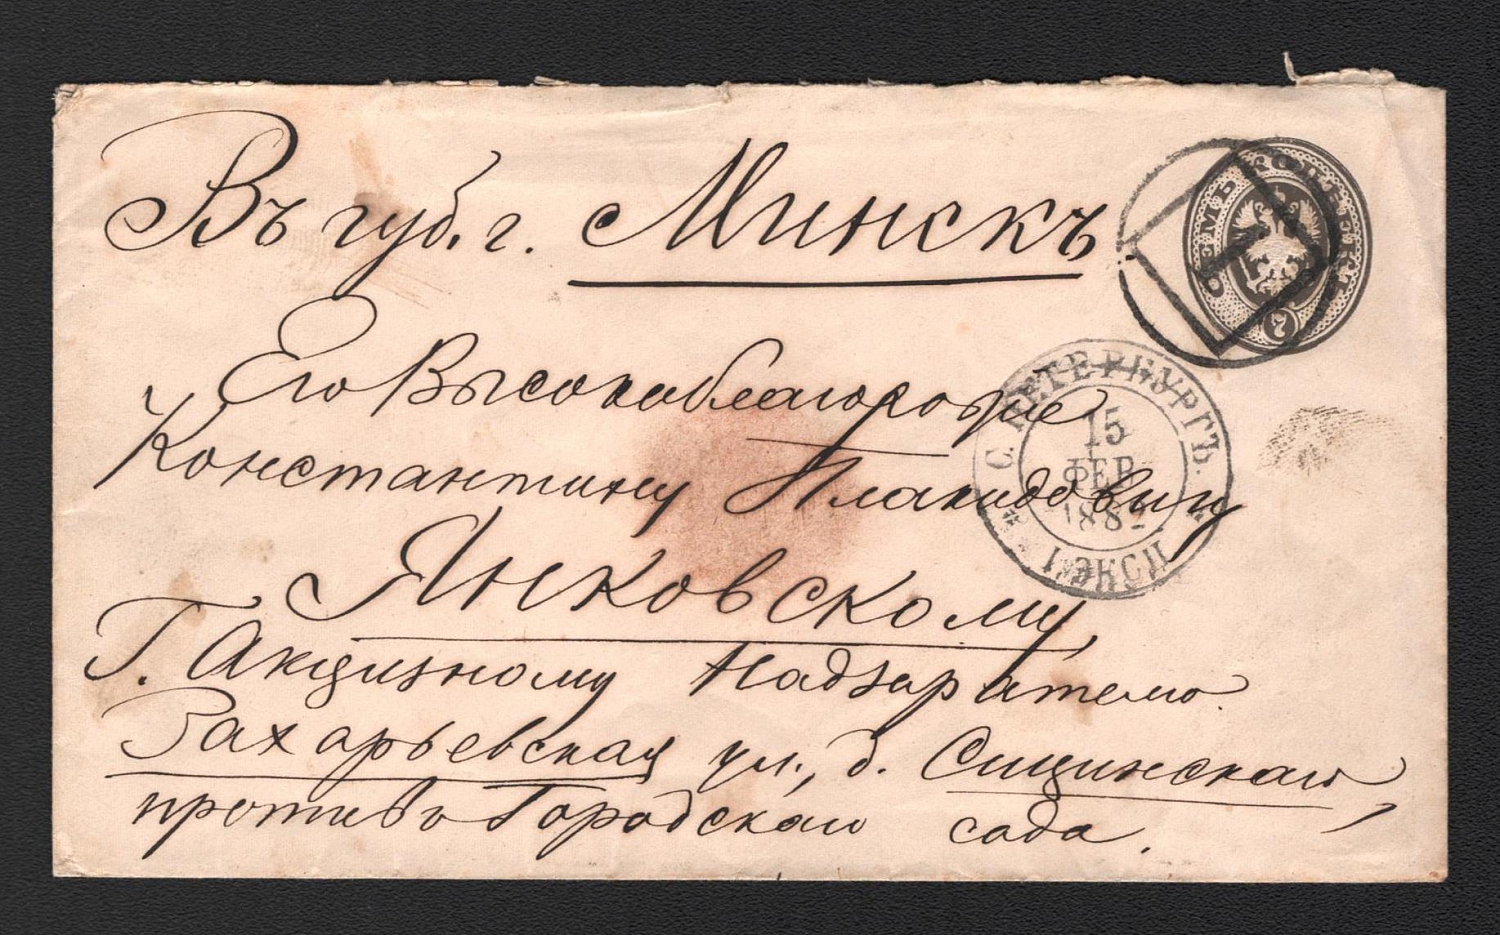 Въ губ. г. Минскъ
СЕМЬ КОПѢЕКЪ
7
1
Его Высокоблагородiе
С. ПЕТЕРБУРГЪ.
15
ФЕВ
1882
1 ЭКСП
Константину Плакидовичу
Янковскому
Г. Акцизному Надзирателю.
Захарьевская ул., д. Сицинскаго,
противъ Городскаго сада.